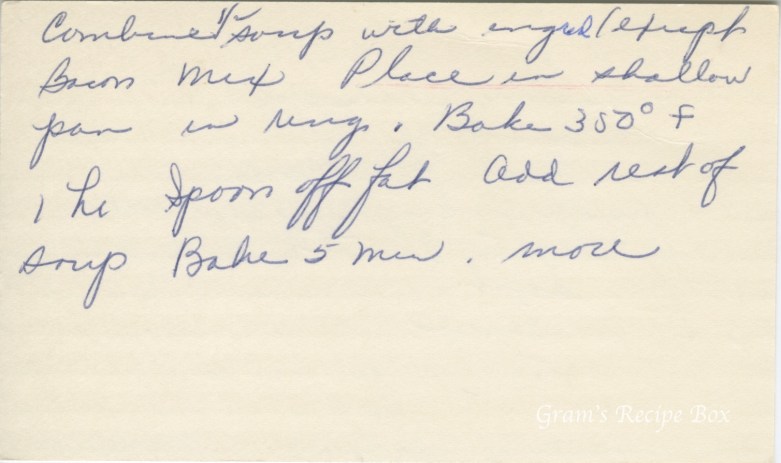 Combine ½ soup with ingred (except
Bacon Mix Place in shallow
pan in ring. Bake 350° F
1 hr Spoon off fat Add rest of
soup Bake 5 min. more
Gram's Recipe Box